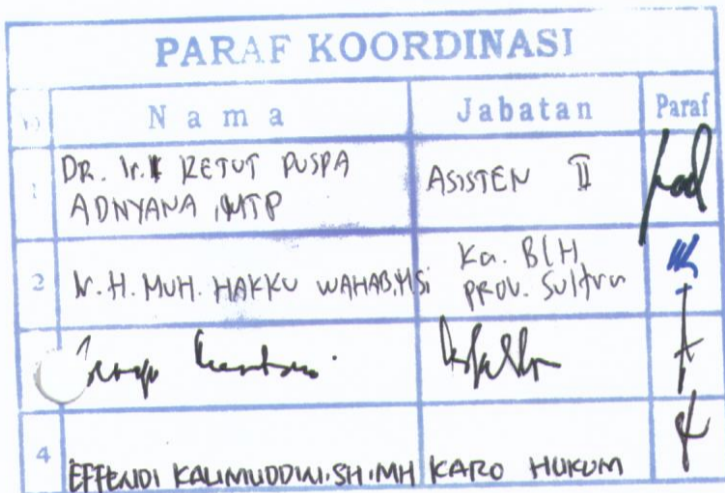 PARAF KOORDINASI
Nama Jabatan Paraf
1 DR. Ir. I KETUT PUSPA ADNYANA, MTP ASISTEN II
2 Ir. H. MUH. HAKKU WAHAB, MSi Ka. BLH PROV. Sultra
4 EFFENDI KALIMUDDIN, SH, MH KARO HUKUM